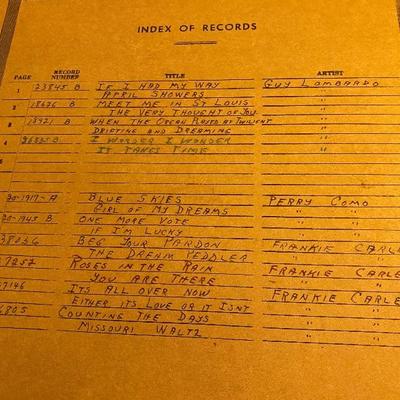 INDEX OF RECORDS
PAGE RECORD NUMBER TITLE ARTIST
1 23845 B IF I HAD MY WAY GUY LOMBARDO
APRIL SHOWERS " "
2 18626 B MEET ME IN ST LOUIS " "
THE VERY THOUGHT OF YOU
3 B WHEN THE ORGAN PLAYED AT TWILIGHT " "
DRIFTING AND DREAMING
4 B I WONDER I WONDER " "
IT TAKES TIME
5
6
20-1917-A BLUE SKIES PERRY COMO
GIRL OF MY DREAMS " "
20-1945 B ONE MORE VOTE " "
IF I'M LUCKY " "
38036 BEG YOUR PARDON FRANKIE CARLE
THE DREAM PEDDLER " "
7252 ROSES IN THE RAIN FRANKIE CARLE
YOU ARE THERE " "
7146 ITS ALL OVER NOW FRANKIE CARLE
EITHER ITS LOVE OR IT ISNT " "
6805 COUNTING THE DAYS " "
MISSOURI WALTZ " "